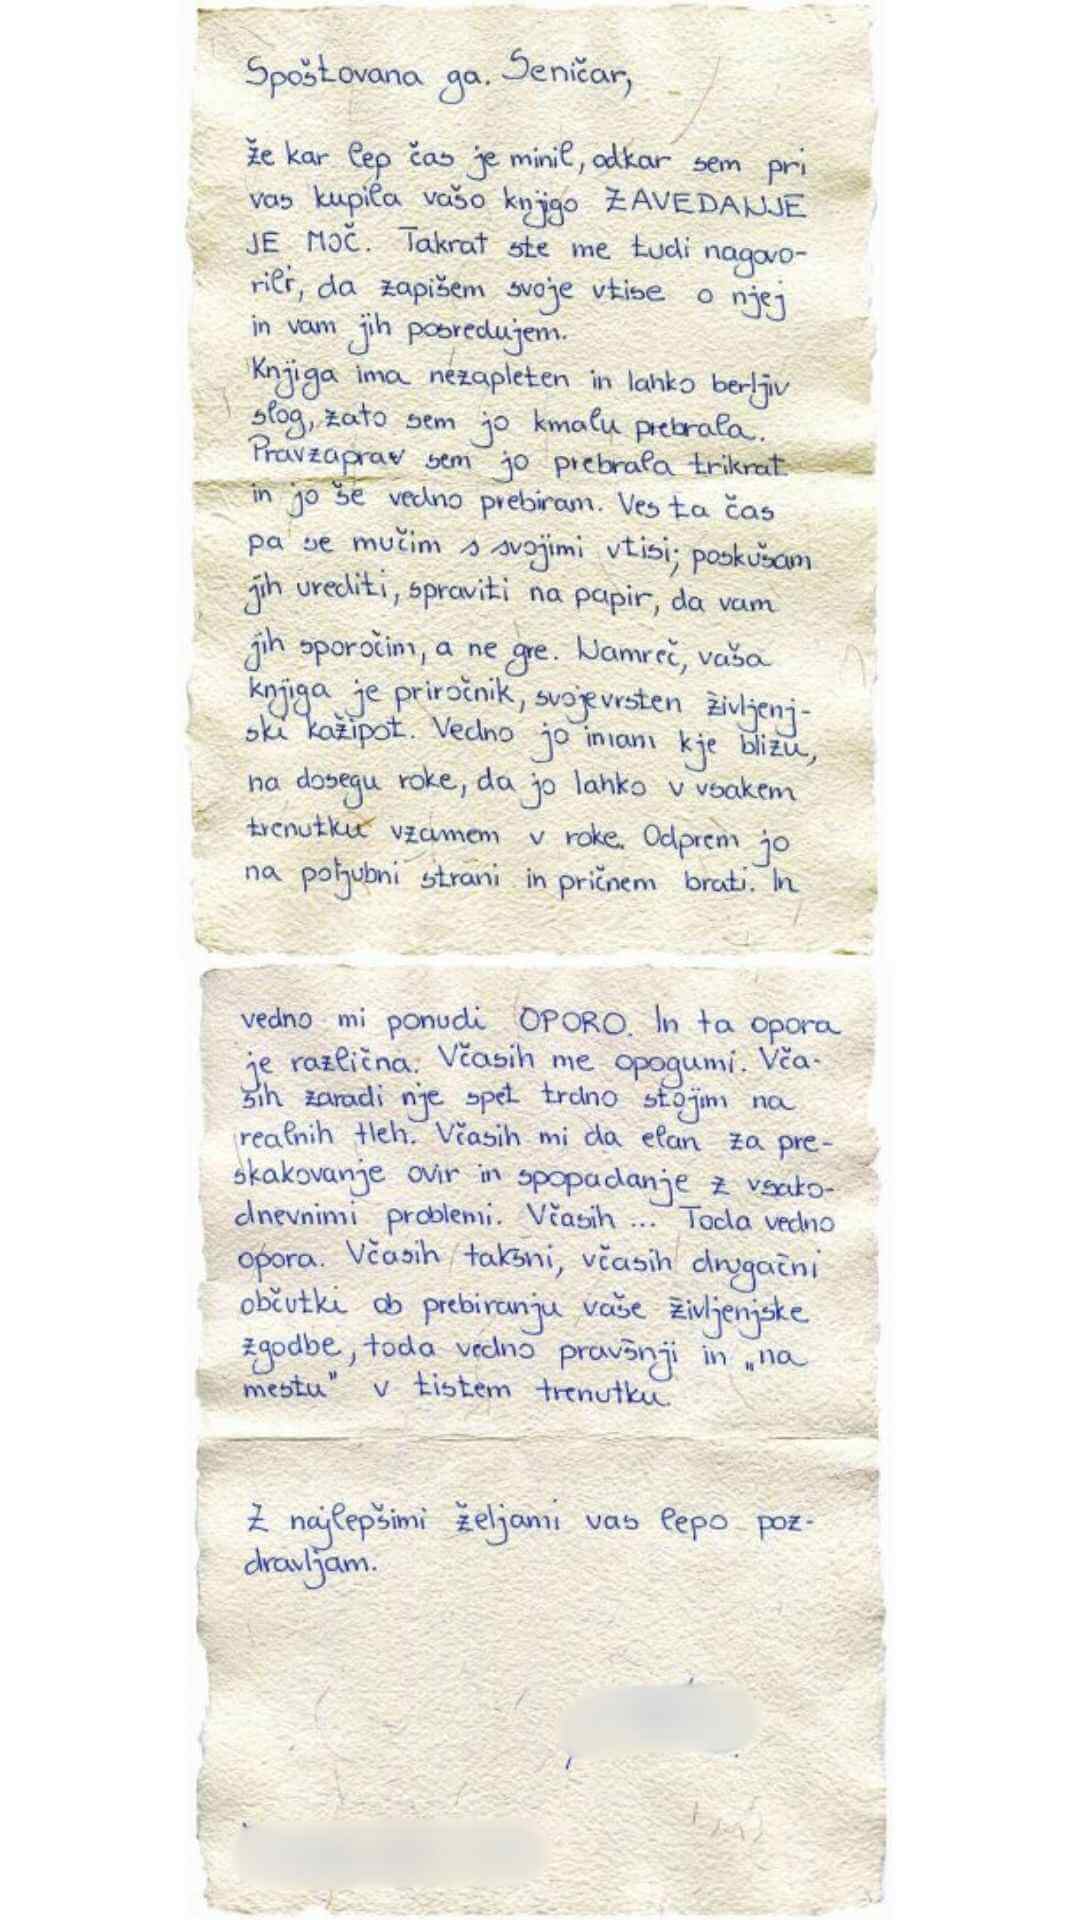 Spoštovana ga. Seničar,
že kar lep čas je minil, odkar sem pri
vas kupila vašo knjigo ZAVEDANJE
JE MOČ. Takrat ste me tudi nagovo-
rili, da zapišem svoje vtise o njej
in vam jih posredujem.
Knjiga ima nezapleten in lahko berljiv
slog, zato sem jo kmalu prebrala.
Pravzaprav sem jo prebrala trikrat
in jo še vedno prebiram. Ves ta čas
pa se mučim s svojimi vtisi; poskušam
jih urediti, spraviti na papir, da vam
jih sporočim, a ne gre. Namreč, vaša
knjiga je priročnik, svojevrsten življenj-
ski kažipot. Vedno jo imam kje blizu,
na dosegu roke, da jo lahko v vsakem
trenutku vzamem v roke. Odprem jo
na poljubni strani in pričnem brati. In
vedno mi ponudi OPORO. In ta opora
je različna. Včasih me opogumi. Vča-
sih zaradi nje spet trdno stojim na
realnih tleh. Včasih mi da elan za pre-
skakovanje ovir in spopadanje z vsako-
dnevnimi problemi. Včasih ... Toda vedno
opora. Včasih takšni, včasih drugačni
občutki ob prebiranju vaše življenjske
zgodbe, toda vedno pravšnji in „na
mestu" v tistem trenutku.
Z najlepšimi željami vas lepo poz-
dravljam.